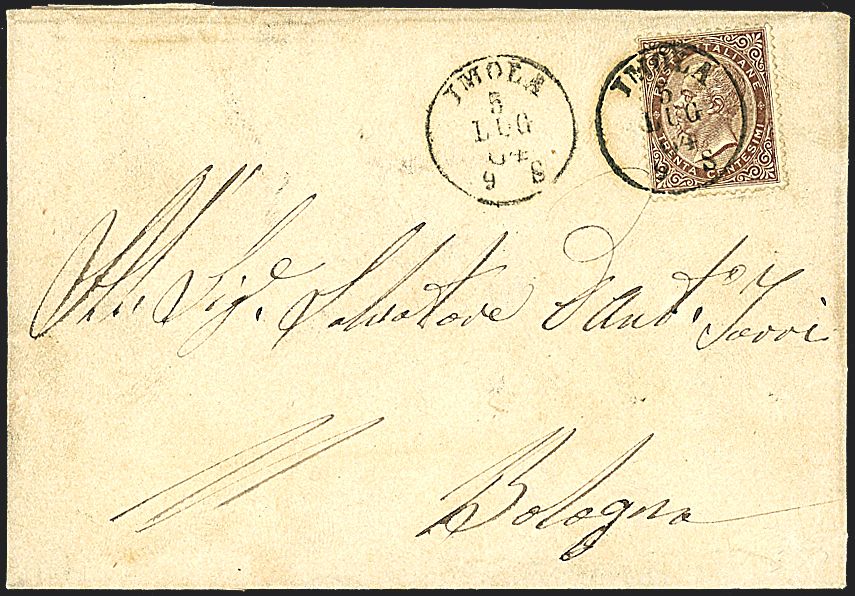 IMOLA
5
LUG
64
9 S
POSTE ITALIANE
IMOLA
5
LUG
64
9 S
TRENTA CENTESIMI
Ill. Sig.e Salvatore d'Ant.o
Bologna